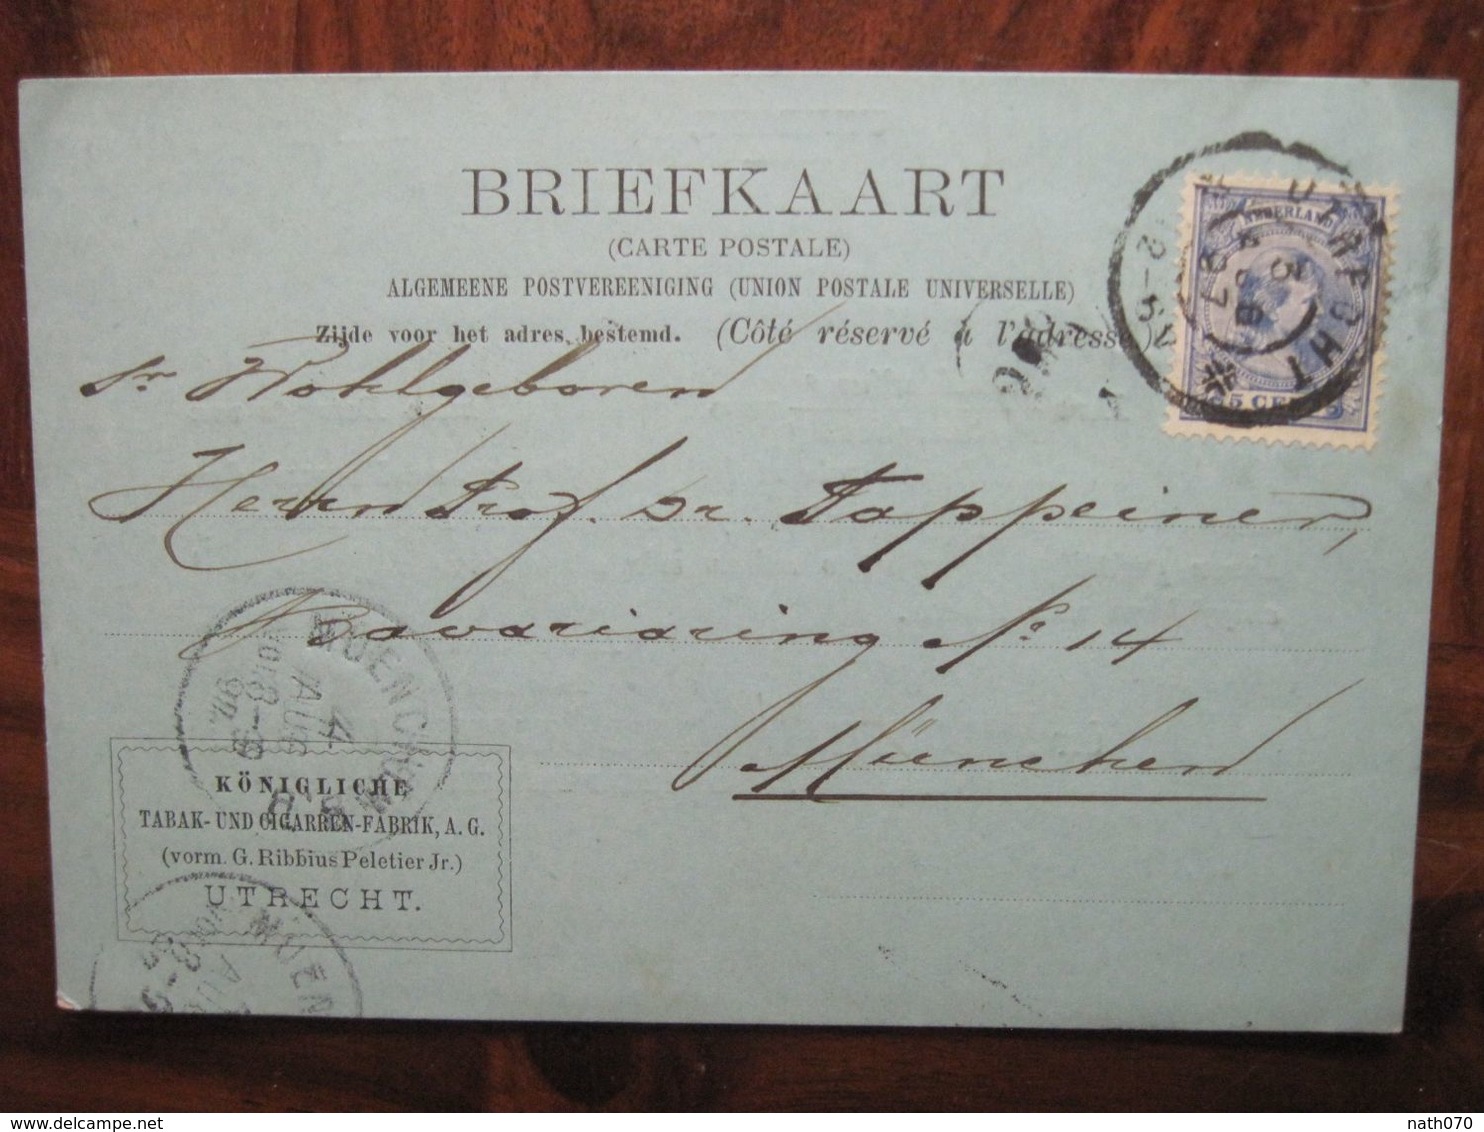 BRIEFKAART
(CARTE POSTALE)
ALGEMEENE POSTVEREENIGING (UNION POSTALE UNIVERSELLE)
Zijde voor het adres bestemd. (Côté réservé à l'adresse)
NEDERLAND
5 CENT
UTRECHT
Sr Wohlgeboren
Herrn Prof. Dr. Tappeiner,
Bavariaring No 14
München
MUENCHEN
4
AUG
VOR. 8-9
KÖNIGLICHE
TABAK- UND CIGARREN-FABRIK, A. G.
(vorm. G. Ribbius Peletier Jr.)
UTRECHT.
MUEN
AUG
delcampe.net
nath070